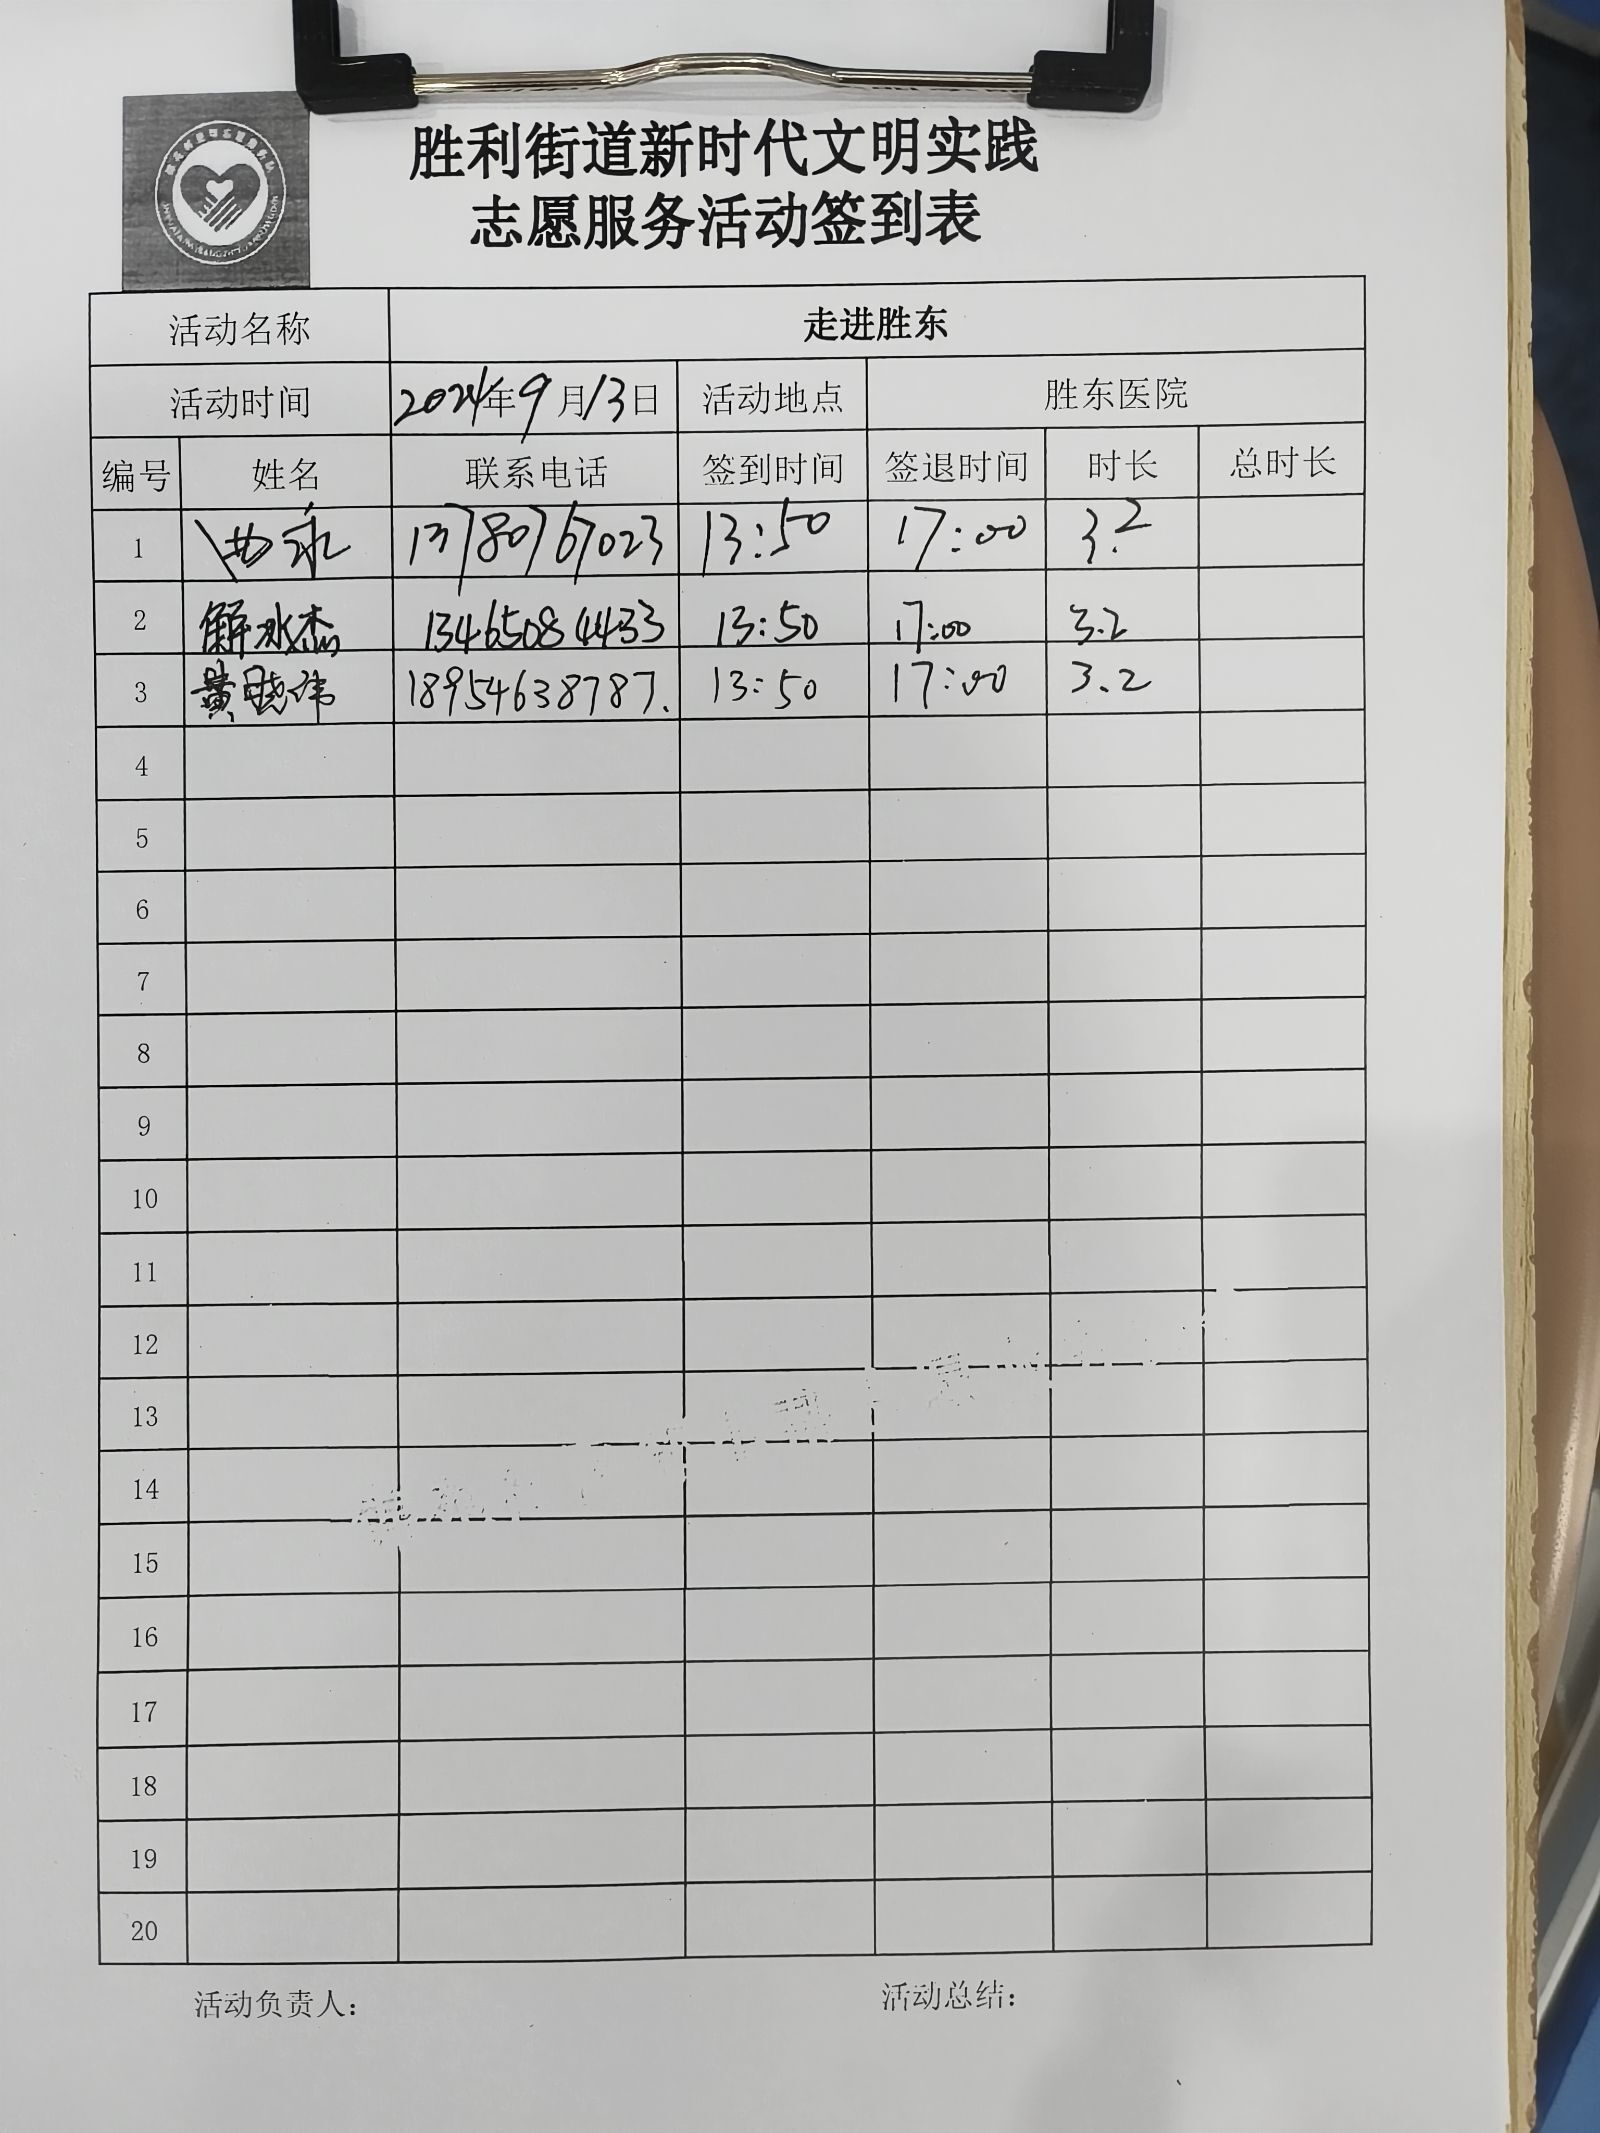 胜利街道新时代文明实践
志愿服务活动签到表
活动名称 走进胜东
活动时间 2024年9月13日 活动地点 胜东医院
编号 姓名 联系电话 签到时间 签退时间 时长 总时长
1 13780767023 13:50 17:00 3.2
2 解水杰 13465084433 13:50 17:00 3.2
3 黄晓伟 18954638787. 13:50 17:00 3.2
4
5
6
7
8
9
10
11
12
13
14
15
16
17
18
19
20
活动负责人： 活动总结：